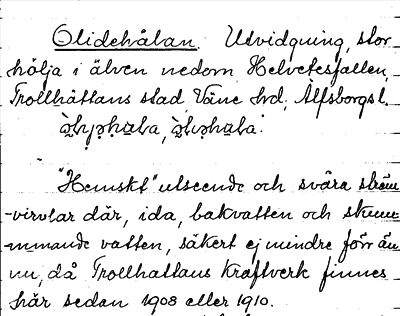 Olidehålan. Utvidgning, stor
hölja i älven nedom Helvetesfallen,
Trollhättans stad, Väne hrd, Älfsborgsl.
"Hemskt" utseende och svåra ström
-virvlar där, ida, bakvatten och skumm
-mmande vatten, säkert ej mindre förr än
nu, då Trollhättans Kraftverk finnes
här sedan 1908 eller 1910.